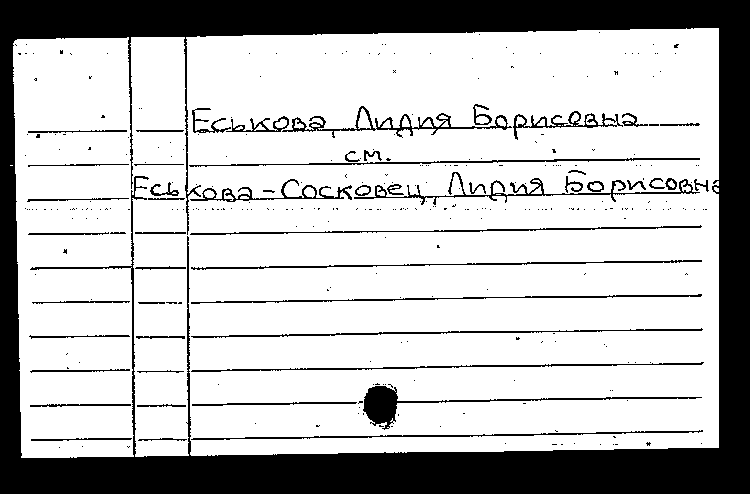 Еськова, Лидия Борисовна
см.
Еськова-Сосковец, Лидия Борисовна